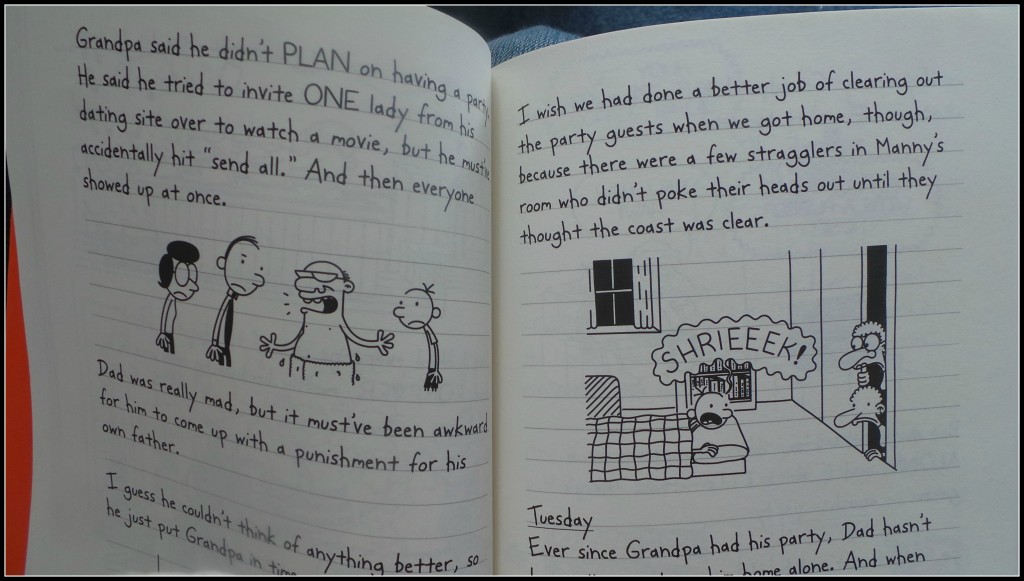 Grandpa said he didn't PLAN on having a party.
He said he tried to invite ONE lady from his
dating site over to watch a movie, but he must've
accidentally hit "send all." And then everyone
showed up at once.
Dad was really mad, but it must've been awkward
for him to come up with a punishment for his
own father.
I guess he couldn't think of anything better, so
he just put Grandpa in time
I wish we had done a better job of clearing out
the party guests when we got home, though,
because there were a few stragglers in Manny's
room who didn't poke their heads out until they
thought the coast was clear.
SHRIEEEK!
Tuesday
Ever since Grandpa had his party, Dad hasn't
home alone. And when